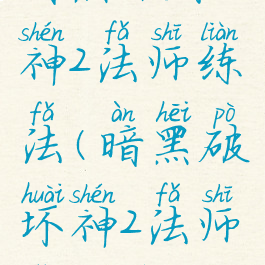 shén fǎ shī liàn
神2法师练
fǎ àn hēi pò
法(暗黑破
huài shén fǎ shī
坏神2法师